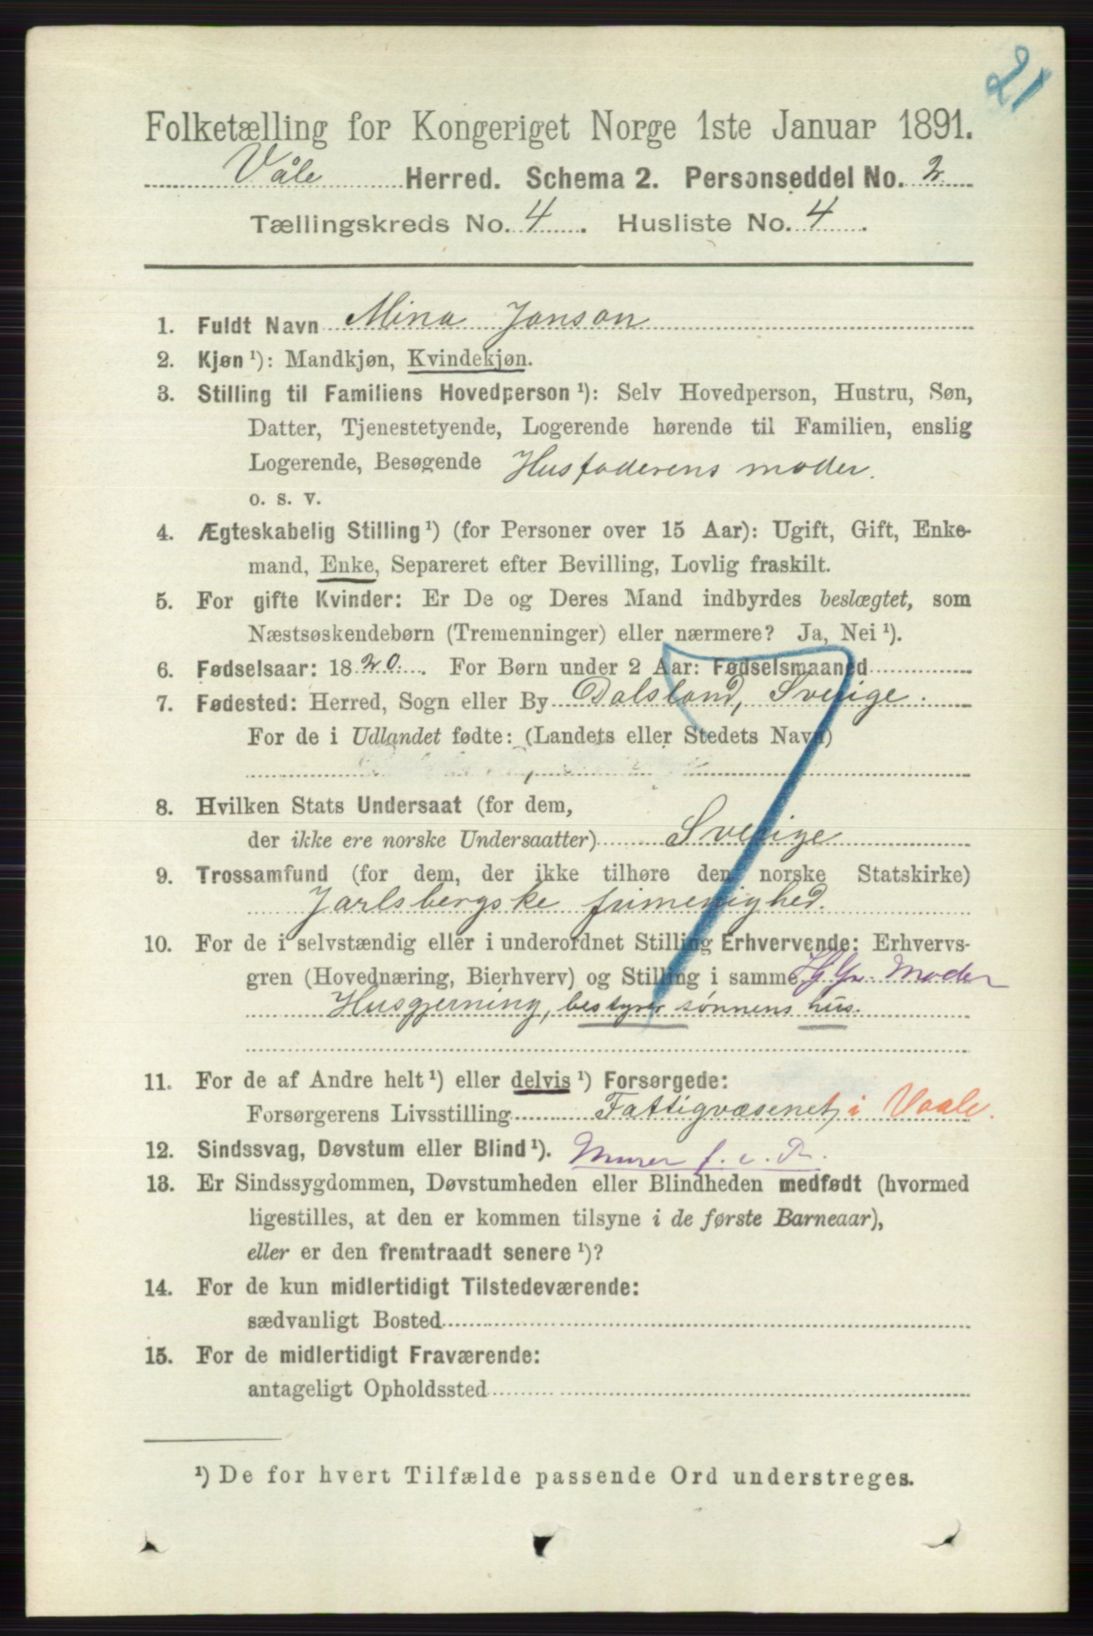 21
Folketælling for Kongeriget Norge 1ste Januar 1891.
Våle Herred. Schema 2. Personseddel No. 2
Tællingskreds No. 4. Husliste No. 4.
1. Fuldt Navn Mina Janson
2. Kjøn ¹): Mandkjøn, Kvindekjøn.
3. Stilling til Familiens Hovedperson ¹): Selv Hovedperson, Hustru, Søn,
Datter, Tjenestetyende, Logerende hørende til Familien, enslig
Logerende, Besøgende Husfaderens moder.
o. s. v.
4. Ægteskabelig Stilling ¹) (for Personer over 15 Aar): Ugift, Gift, Enke-
mand, Enke, Separeret efter Bevilling, Lovlig fraskilt.
5. For gifte Kvinder: Er De og Deres Mand indbyrdes beslægtet, som
Næstsøskendebørn (Tremenninger) eller nærmere? Ja, Nei ¹).
6. Fødselsaar: 1820. For Børn under 2 Aar: Fødselsmaaned
7. Fødested: Herred, Sogn eller By Dalsland, Sverige.
For de i Udlandet fødte: (Landets eller Stedets Navn)
8. Hvilken Stats Undersaat (for dem,
der ikke ere norske Undersaatter) Sverige
9. Trossamfund (for dem, der ikke tilhøre den norske Statskirke)
Jarlsbergske frimenighed.
10. For de i selvstændig eller i underordnet Stilling Erhvervende: Erhvervs-
gren (Hovednæring, Bierhverv) og Stilling i samme Moder
Husgjerning, bestyrer sønnens hus.
11. For de af Andre helt ¹) eller delvis ¹) Forsørgede:
Forsørgerens Livsstilling Fattigvæsenet i Vaale.
12. Sindssvag, Døvstum eller Blind ¹). Murer f. e. R.
13. Er Sindssygdommen, Døvstumheden eller Blindheden medfødt (hvormed
ligestilles, at den er kommen tilsyne i de første Barneaar),
eller er den fremtraadt senere ¹)?
14. For de kun midlertidigt Tilstedeværende:
sædvanligt Bosted
15. For de midlertidigt Fraværende:
antageligt Opholdssted
¹) De for hvert Tilfælde passende Ord understreges.